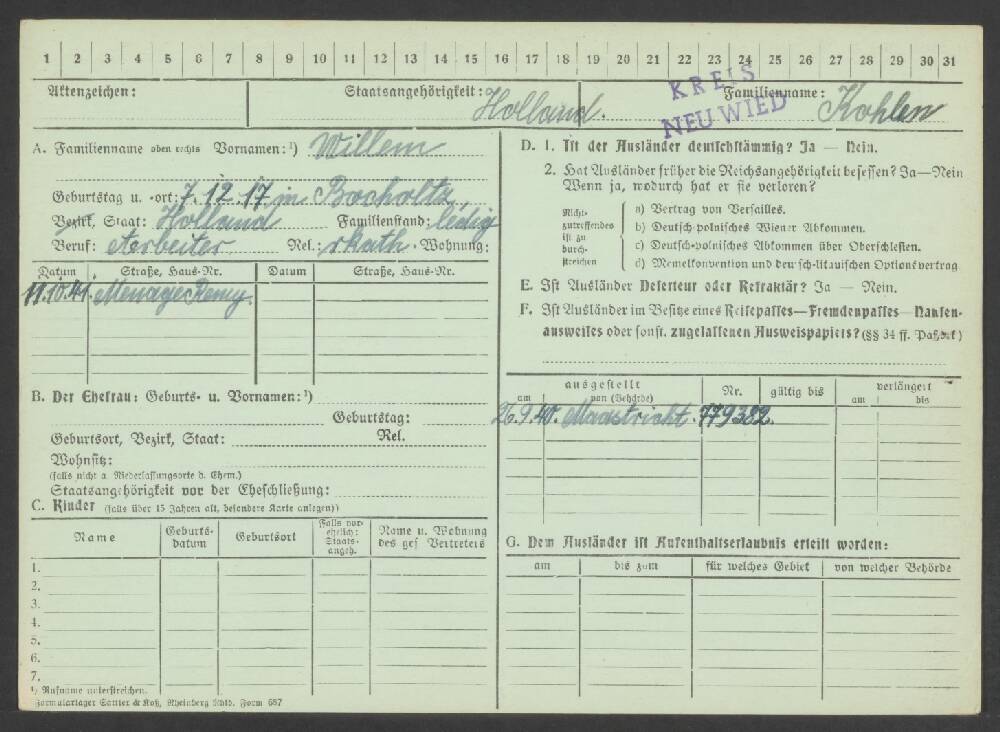 1 2 3 4 5 6 7 8 9 10 11 12 13 14 15 16 17 18 19 20 21 22 23 24 25 26 27 28 29 30 31
Aktenzeichen: Staatsangehörigkeit: Holland. Familienname: Kohlen
KREIS
NEUWIED
A. Familienname oben rechts Vornamen:¹) Willem
Geburtstag u. -ort: 7.12.17 in Bocholtz
Bezirk, Staat: Holland Familienstand: ledig
Beruf: Arbeiter Rel.: rkath. Wohnung:
Datum Straße, Haus-Nr. Datum Straße, Haus-Nr.
11.10.41. Menage Remy.
B. Der Ehefrau: Geburts- u. Vornamen:¹)
Geburtstag:
Geburtsort, Bezirk, Staat: Rel.
Wohnsitz:
(falls nicht a. Niederlassungsorte d. Ehem.)
Staatsangehörigkeit vor der Eheschließung:
C. Kinder (falls über 15 Jahren alt, besondere Karte anlegen))
Name Geburts-datum Geburtsort Falls vor-ehelich: Staats-angeh. Name u. Wohnung des ges Vertreters
1.
2.
3.
4.
5.
6.
7.
¹) Rufname unterstreichen.
Formularlager Sattler & Koß, Rheinberg Rhld. Form 687
D. 1. Ist der Ausländer deutschstämmig? Ja — Nein.
2. Hat Ausländer früher die Reichsangehörigkeit besessen? Ja—Nein
Wenn ja, wodurch hat er sie verloren?
Nicht-zutreffendes ist zu durch-streichen
a) Vertrag von Versailles.
b) Deutsch-polnisches Wiener Abkommen.
c) Deutsch-polnisches Abkommen über Oberschlesien.
d) Memelkonvention und deutsch-litauischen Optionsvertrag
E. Ist Ausländer Deserteur oder Refraktär? Ja — Nein.
F. Ist Ausländer im Besitze eines Reisepasses—Fremdenpasses—Nansen-
ausweises oder sonst. zugelassenen Ausweispapiers? (§§ 34 ff. Paßbek)
ausgestellt Nr. gültig bis verlängert
am von (Behörde) am bis
26.9.40. Maastricht. 779382.
G. Dem Ausländer ist Aufenthaltserlaubnis erteilt worden:
am bis zum für welches Gebiet von welcher Behörde